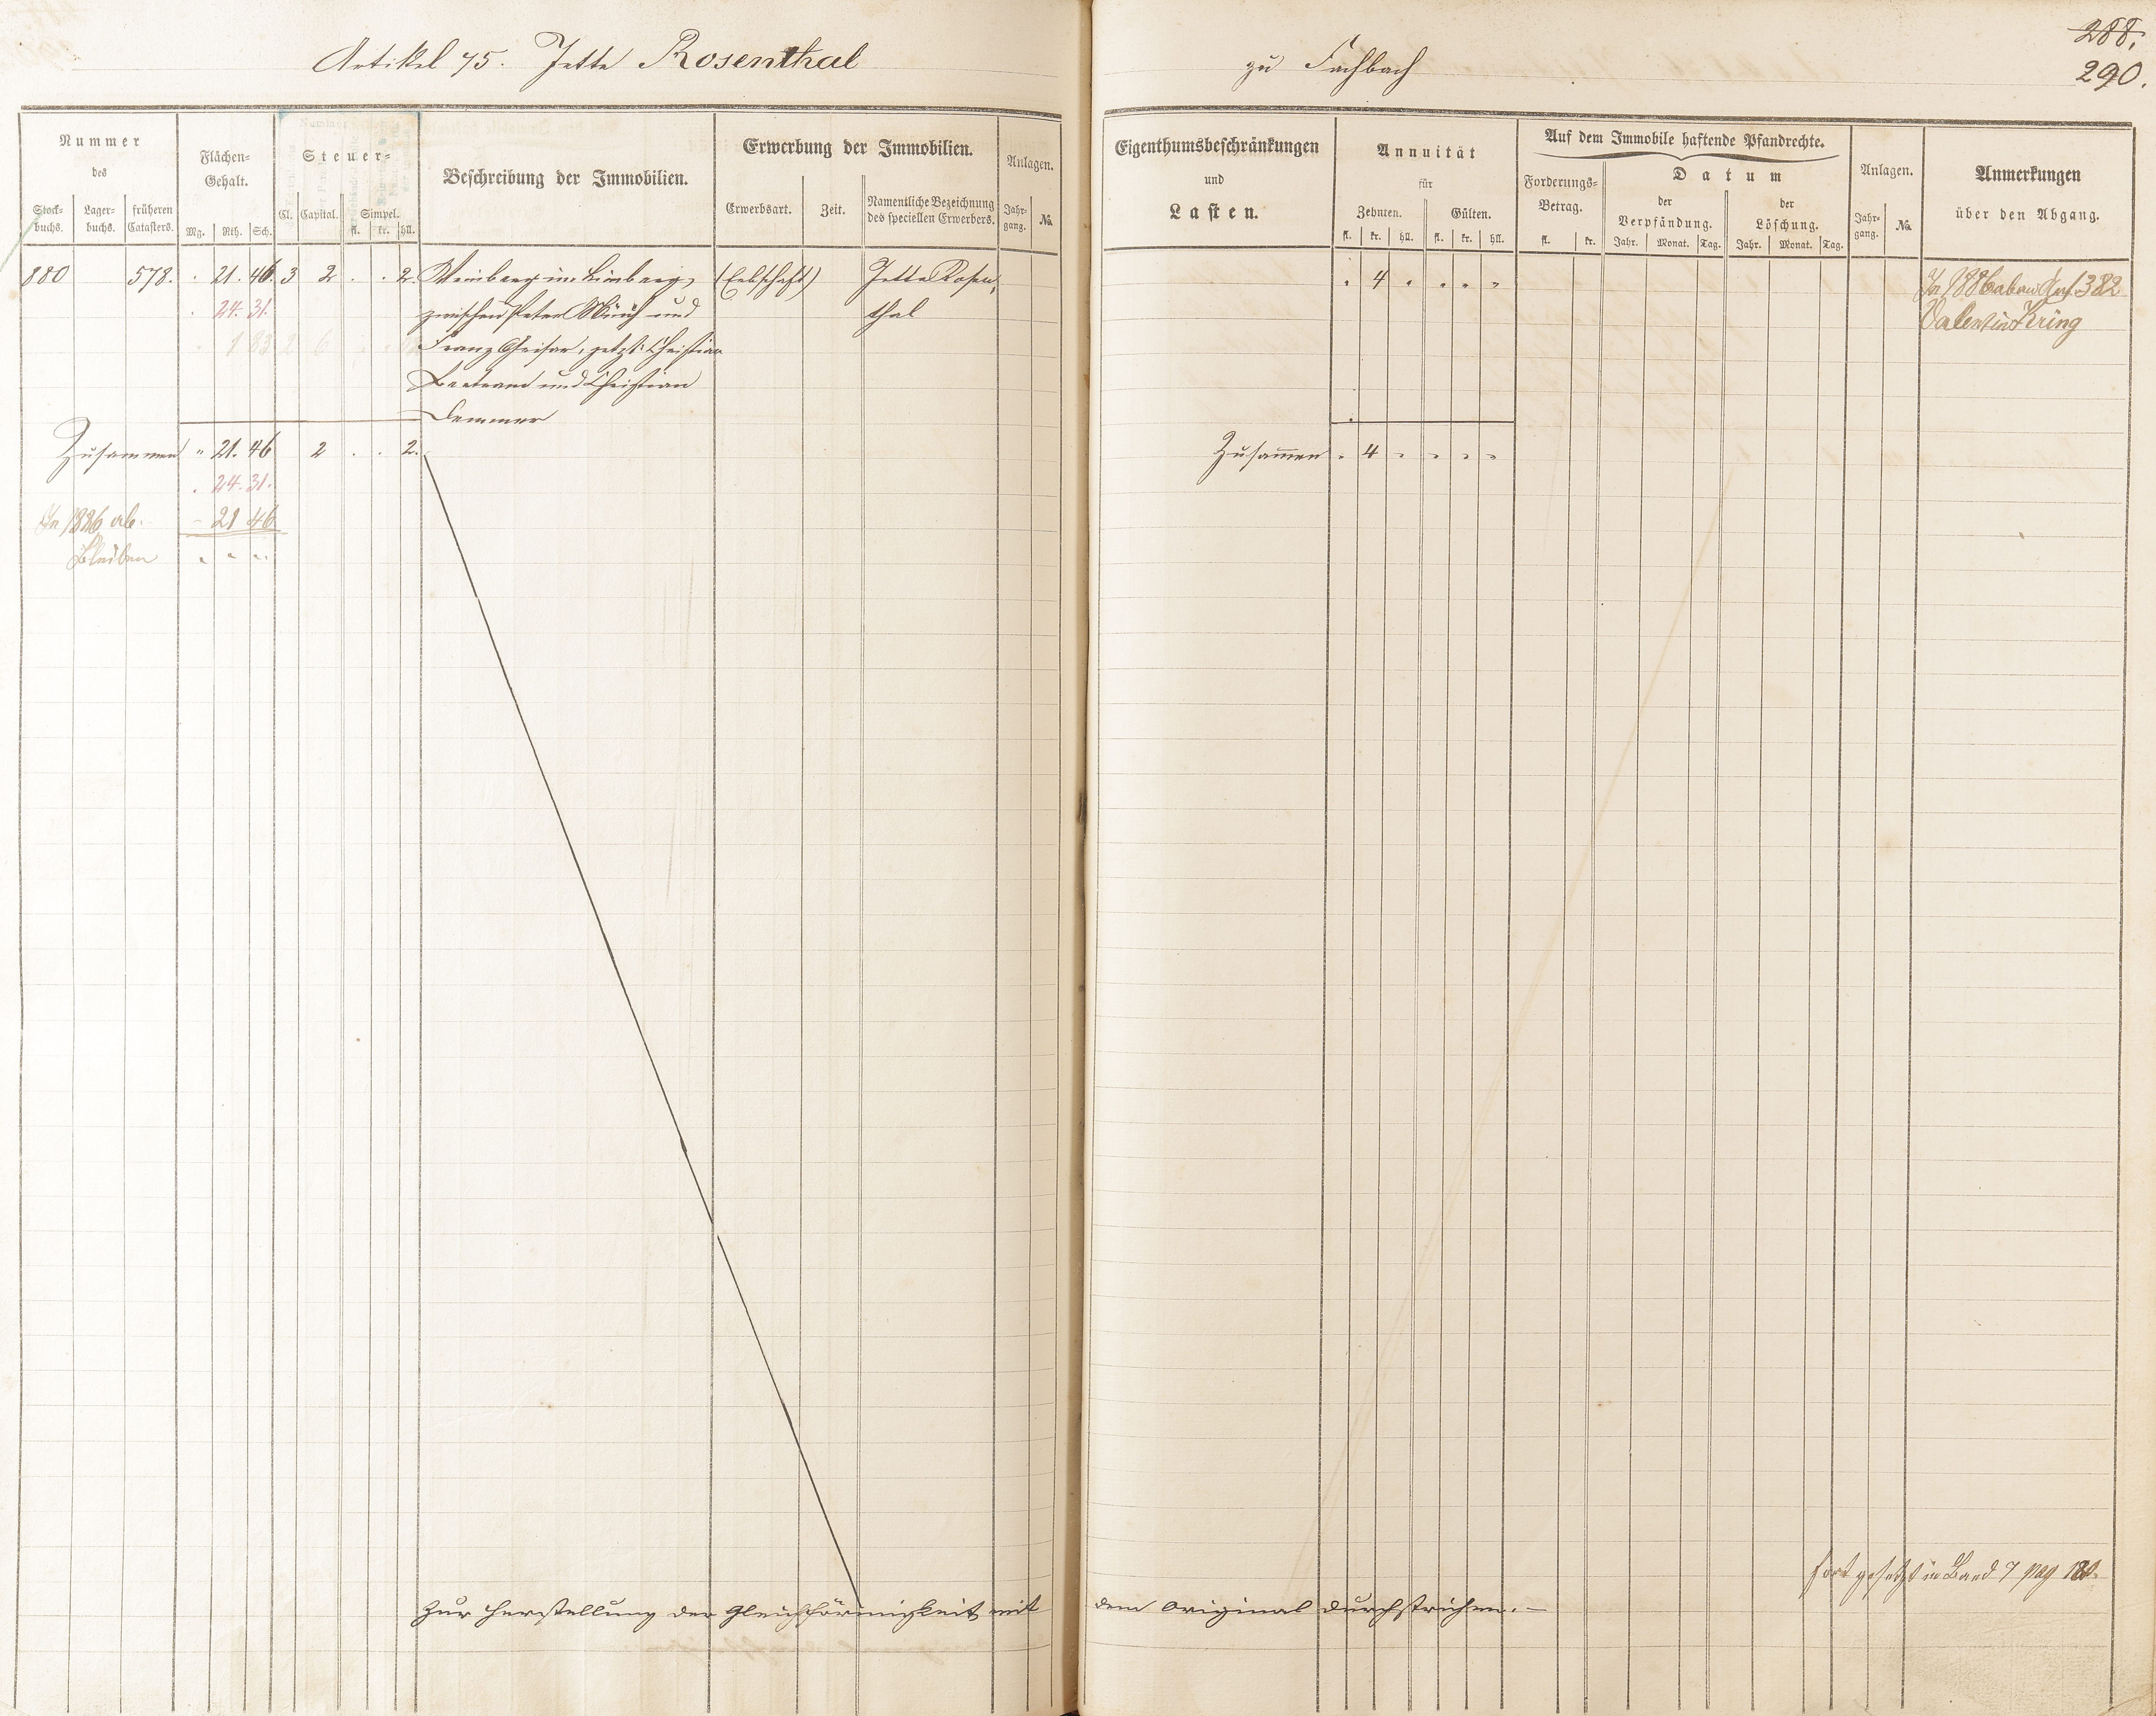 Artikel 75. Jette Rosenthal
zu Fachbach
288.
290.
Nummer
des
Stock-
buchs.
Lager-
buchs.
früheren
Catasters.
Flächen-
Gehalt.
Mg. Rth. Sch.
Steuer-
Cl. Capital. Simpel.
fl. kr. hll.
Beschreibung der Immobilien.
Erwerbung der Immobilien.
Erwerbsart. Zeit.
Namentliche Bezeichnung
des speciellen Erwerbers.
Anlagen.
Jahr-
gang.
No.
Eigenthumsbeschränkungen
und
Lasten.
Annuität
für
Zehnten. Gülten.
fl. kr. hll. fl. kr. hll.
Auf dem Immobile haftende Pfandrechte.
Forderungs-
Betrag.
fl. kr.
Datum
der
Verpfändung.
Jahr. Monat. Tag.
der
Löschung.
Jahr. Monat. Tag.
Anlagen.
Jahr-
gang.
No.
Anmerkungen
über den Abgang.
880 578. . 21. 46. 3 2 . . 2. Weinberg im Limberg, (Erbschaft) Jette Rosen-
. 24. 31. zwischen Peter Münch und thal
1 83 2 6 Franz Grisar, jetzt Christian
Bertram und Christian
Demmer
. 4 . . . .
In 1886 ab an Art. 382
Valentin Kring
Zusammen " 21. 46 2 . . 2.
. 24. 31.
In 1886 ab. - 21 46
Bleiben " " "
Zusammen . 4 . . . .
fortgesetzt in Band 7 pag 180.
Zur Herstellung der Gleichförmigkeit mit dem Original durchstrichen. —